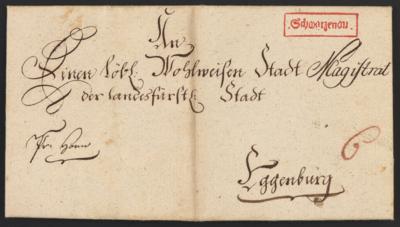 Schwarzenau.
An
Einen Löbl: Wohlweisen Stadt Magistrat
der landesfürstl Stadt
Eggenburg
6